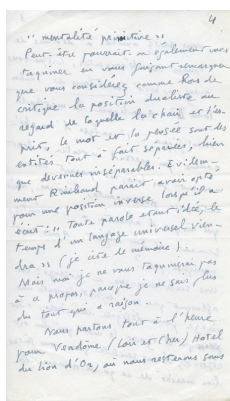 4
"mentalité primitive"
Peut-être pourrait-on également vous
taquiner en vous faisant remarquer
que vous considérez comme hors de
critique la position dualiste au
regard de laquelle la chair et l'es-
prit, le mot et la pensée sont des
entités tout à fait séparées, bien
que devenues inséparables. Evidem-
ment Rimbaud paraît avoir opté
pour une position inverse lorsqu'il a
écrit : "Toute parole étant idée, le
temps d'un langage universel vien-
dra" (je cite de mémoire).
Mais moi je ne vous taquinerai pas
à ce propos, parce que je ne sais plus
du tout qui a raison..
Nous partons tout à l'heure
pour Vendôme (Loir et Cher) Hotel
du Lion d'Or, où nous resterons sans